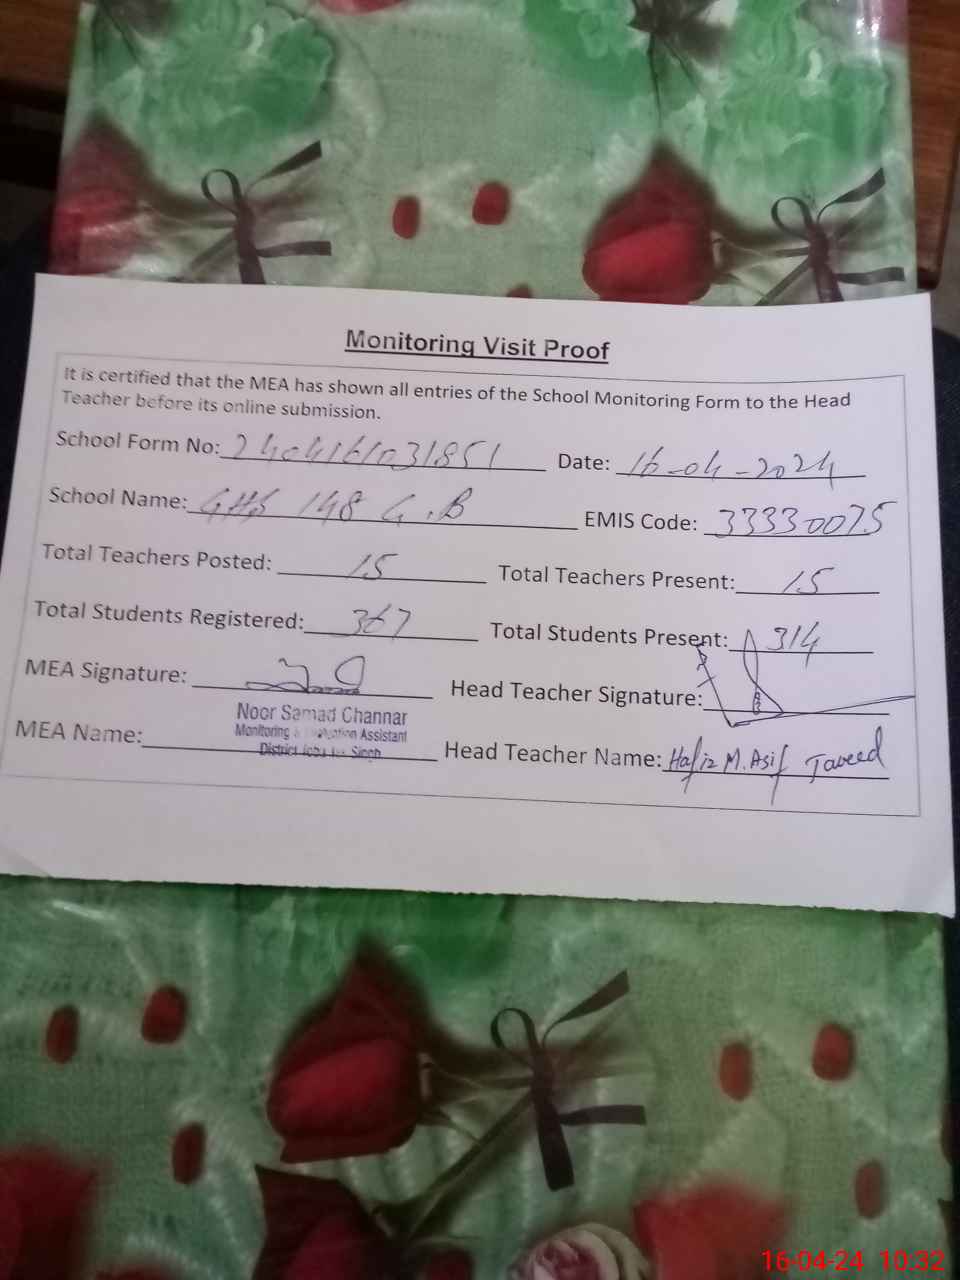 Monitoring Visit Proof
It is certified that the MEA has shown all entries of the School Monitoring Form to the Head
Teacher before its online submission.
School Form No: 2404161031851 Date: 16-04-2024
School Name: GHS 148 G.B EMIS Code: 33330075
Total Teachers Posted: 15 Total Teachers Present: 15
Total Students Registered: 367 Total Students Present: 314
MEA Signature: Head Teacher Signature:
Noor Samad Channar
Monitoring & Evaluation Assistant
District Toba Tek Singh
MEA Name: Head Teacher Name: Hafiz M. Asif Javeed
16-04-24 10:32